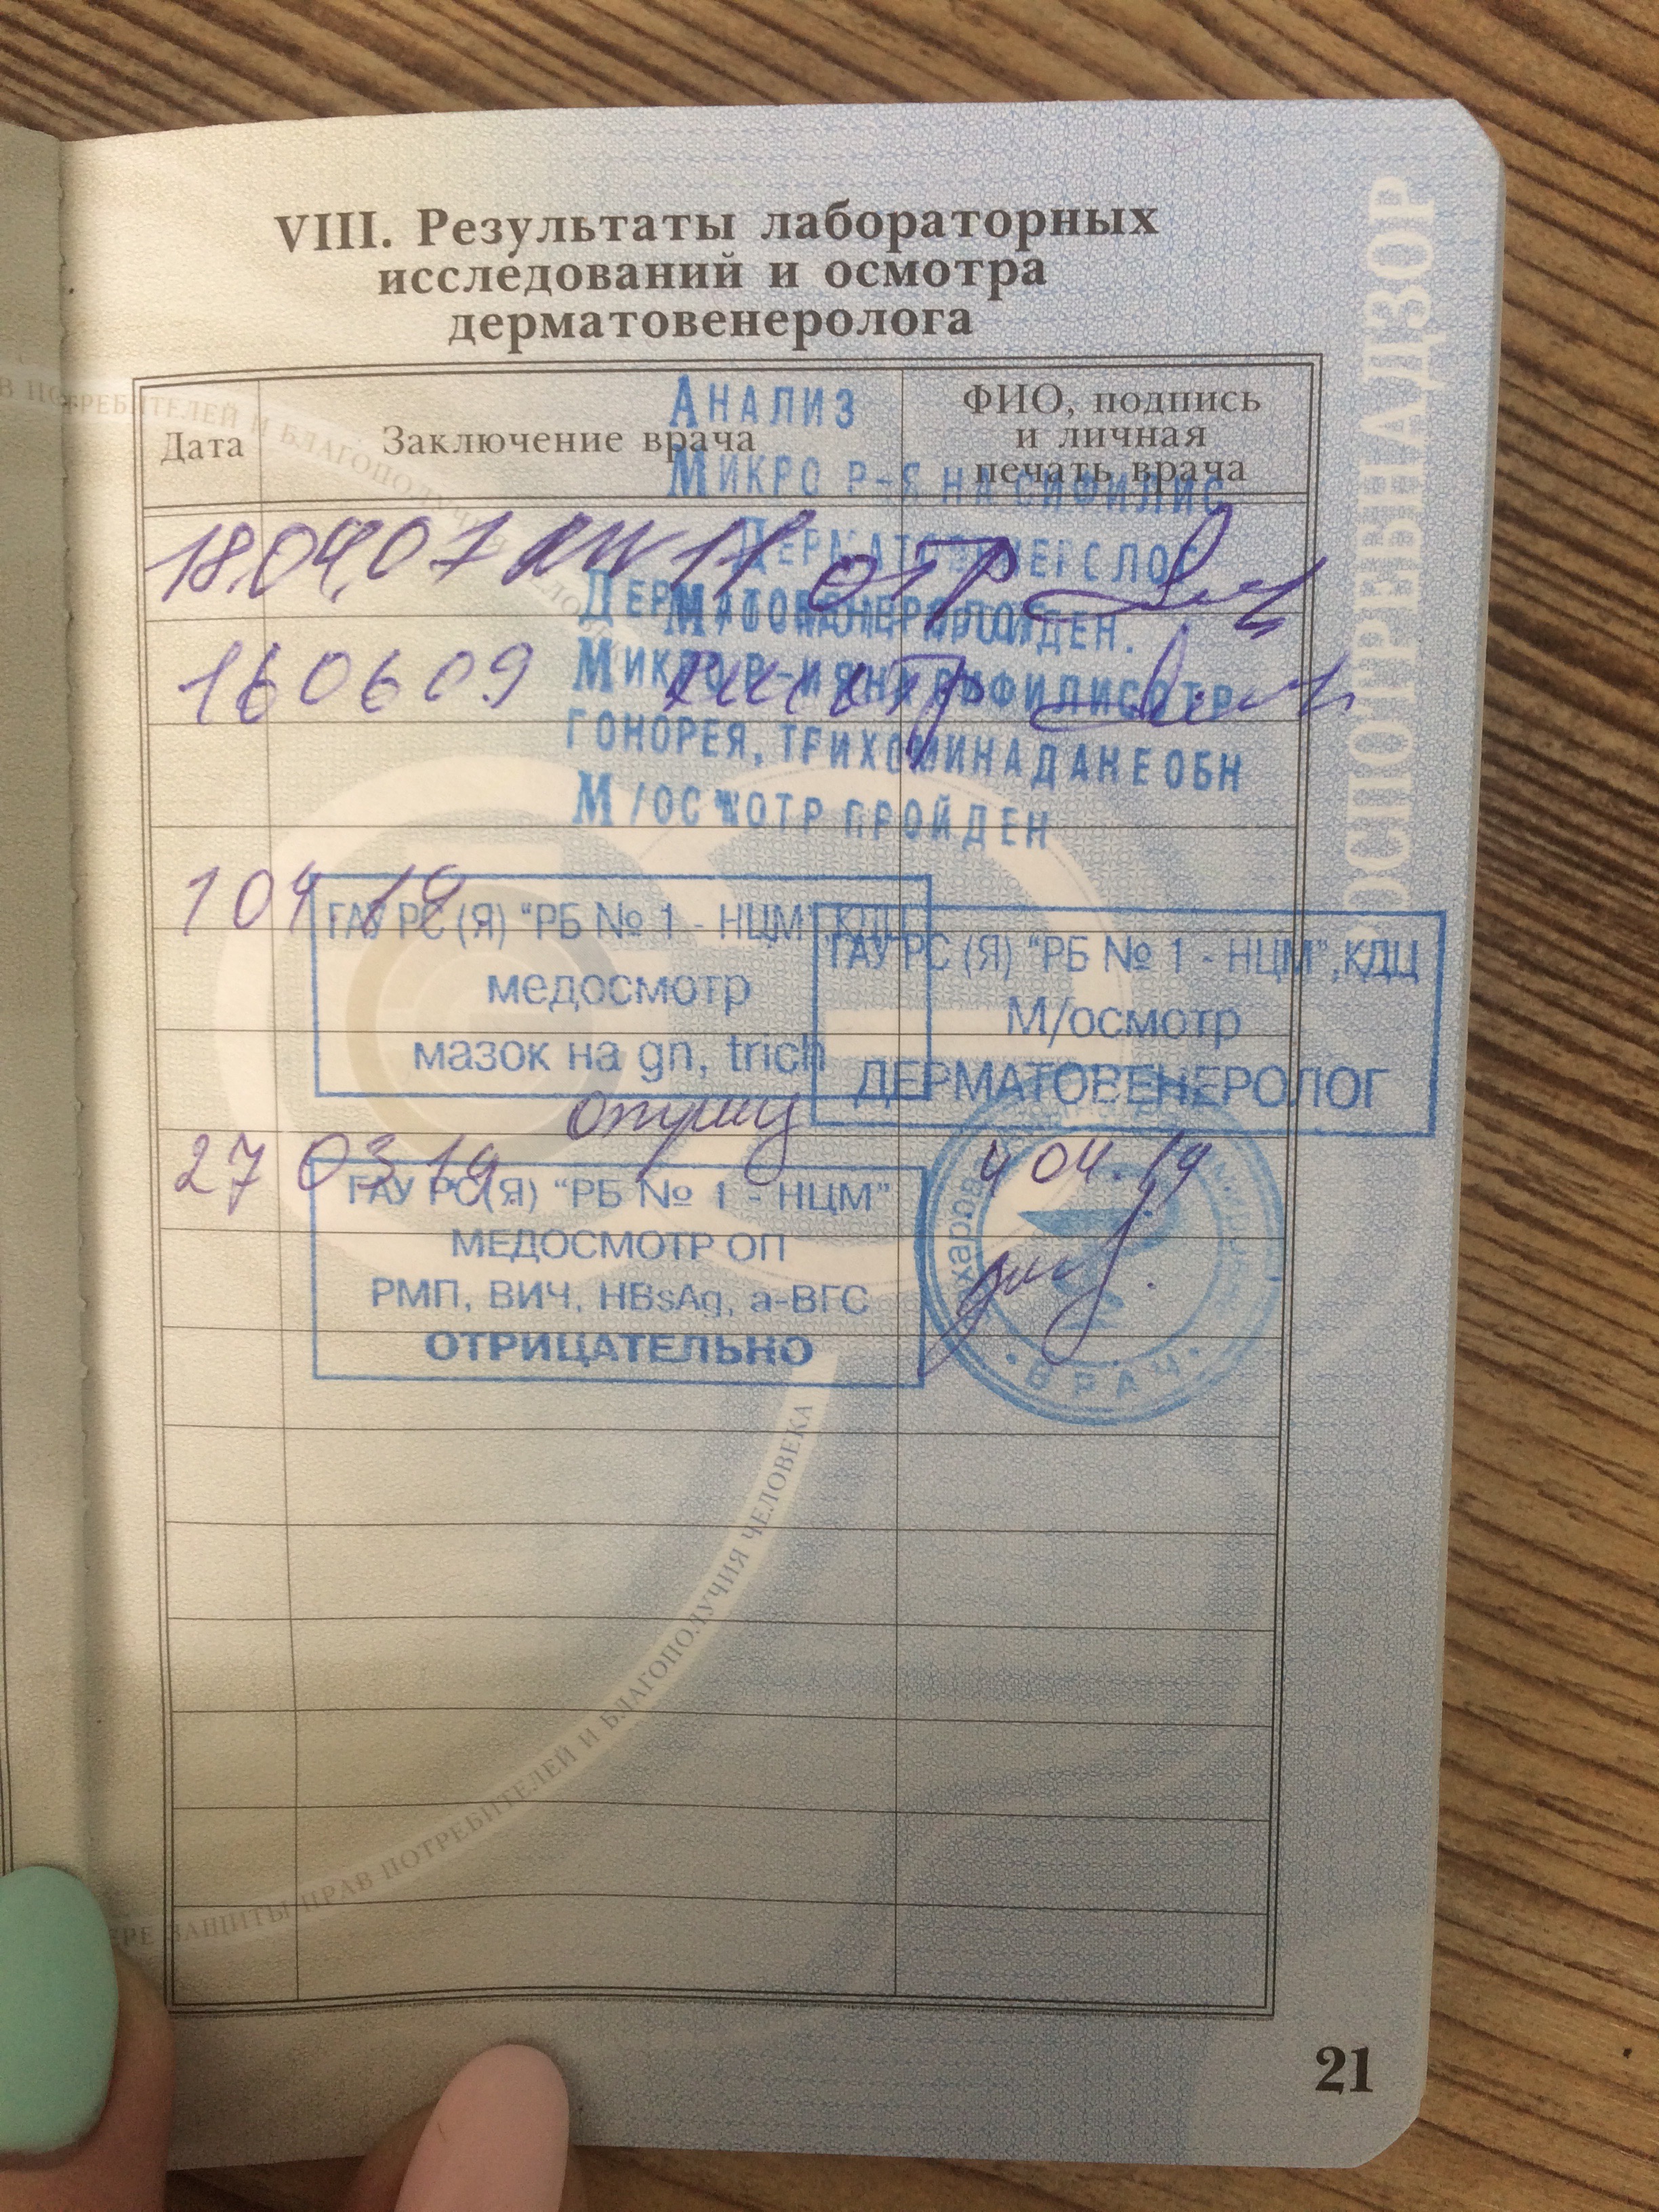 VIII. Результаты лабораторных
исследований и осмотра
дерматовенеролога
Дата
Заключение врача
ФИО, подпись
и личная
печать врача
АНАЛИЗ
МИКРО Р-Я НА СИФИЛИС
18.04.07
отр
ДЕРМАТОВЕНЕРОЛОГ
160609
отр
ГОНОРЕЯ, ТРИХОМИНАДА НЕ ОБН
М/ОСМОТР ПРОЙДЕН
1 04 19
ГАУ РС (Я) "РБ № 1 - НЦМ", КДЦ
медосмотр
мазок на gn, trich
ГАУ РС (Я) "РБ № 1 - НЦМ", КДЦ
М/осмотр
ДЕРМАТОВЕНЕРОЛОГ
27 03 19
ГАУ РС(Я) "РБ № 1 - НЦМ"
МЕДОСМОТР ОП
РМП, ВИЧ, HBsAg, а-ВГС
ОТРИЦАТЕЛЬНО
4 04. 19
ВРАЧ
РОСПОТРЕБНАДЗОР
В ПОТРЕБИТЕЛЕЙ И БЛАГОПОЛУЧИЯ
ЗАЩИТЫ ПРАВ ПОТРЕБИТЕЛЕЙ И БЛАГОПОЛУЧИЯ ЧЕЛОВЕКА
21